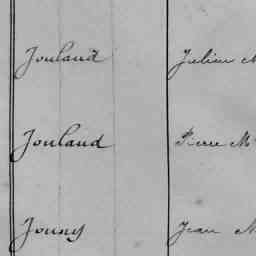 Jouland Julien M
Jouland Pierre M
Jouny Jean M